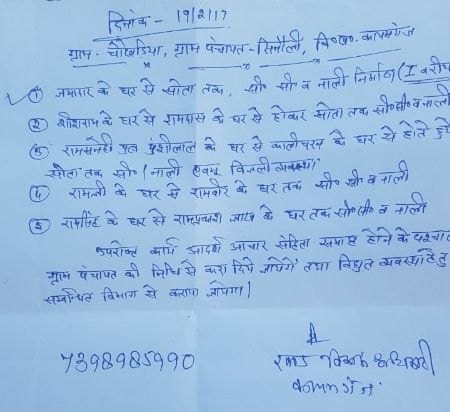 दिनांक - 19/2/17
ग्राम - चौखडिया, ग्राम पंचायत - सिनौली, वि०ख० कायमगंज
① जमादार के घर से सोता तक, सी० सी० व नाली निर्माण (I वरीय
② शीशराम के घर से रामदास के घर से होकर सोता तक सी०सी० व नाली
③ रामसनेही पुत्र वंशीलाल के घर से कालीचरन के घर से होते हुये
सोता तक सी० / नाली एवम् बिजली व्यवस्था
④ रामजी के घर से रामवीर के घर तक सी० सी० व नाली
⑤ रामसिंह के घर से रामप्रकाश के घर तक सी० सी० व नाली
उपरोक्त कार्य आदर्श आचार संहिता समाप्त होने के पश्चात
ग्राम पंचायत की निधि से करा दिये जायेंगे तथा विद्युत व्यवस्था हेतु
सम्बन्धित विभाग से कराया जायेगा।
7398985990
खण्ड विकास अधिकारी
कायमगंज